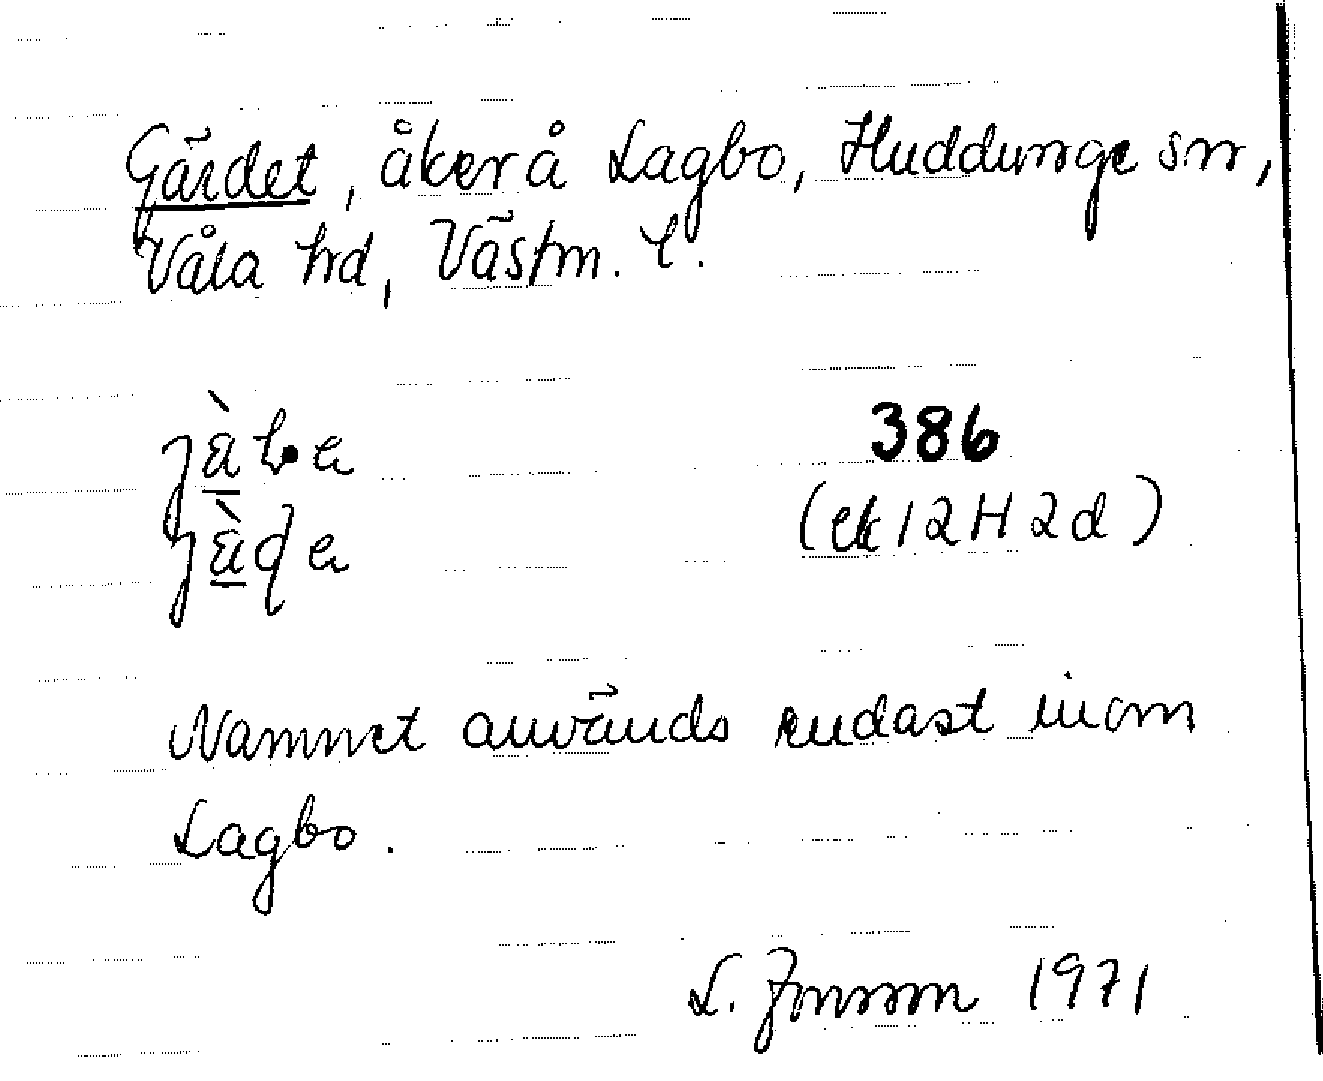 Gärdet, åker å Lagbo, Huddunge sn,
Våla hd, Västm. l.
386
(ek 12H2d)
Namnet används endast inom
Lagbo.
L. Jonson 1971